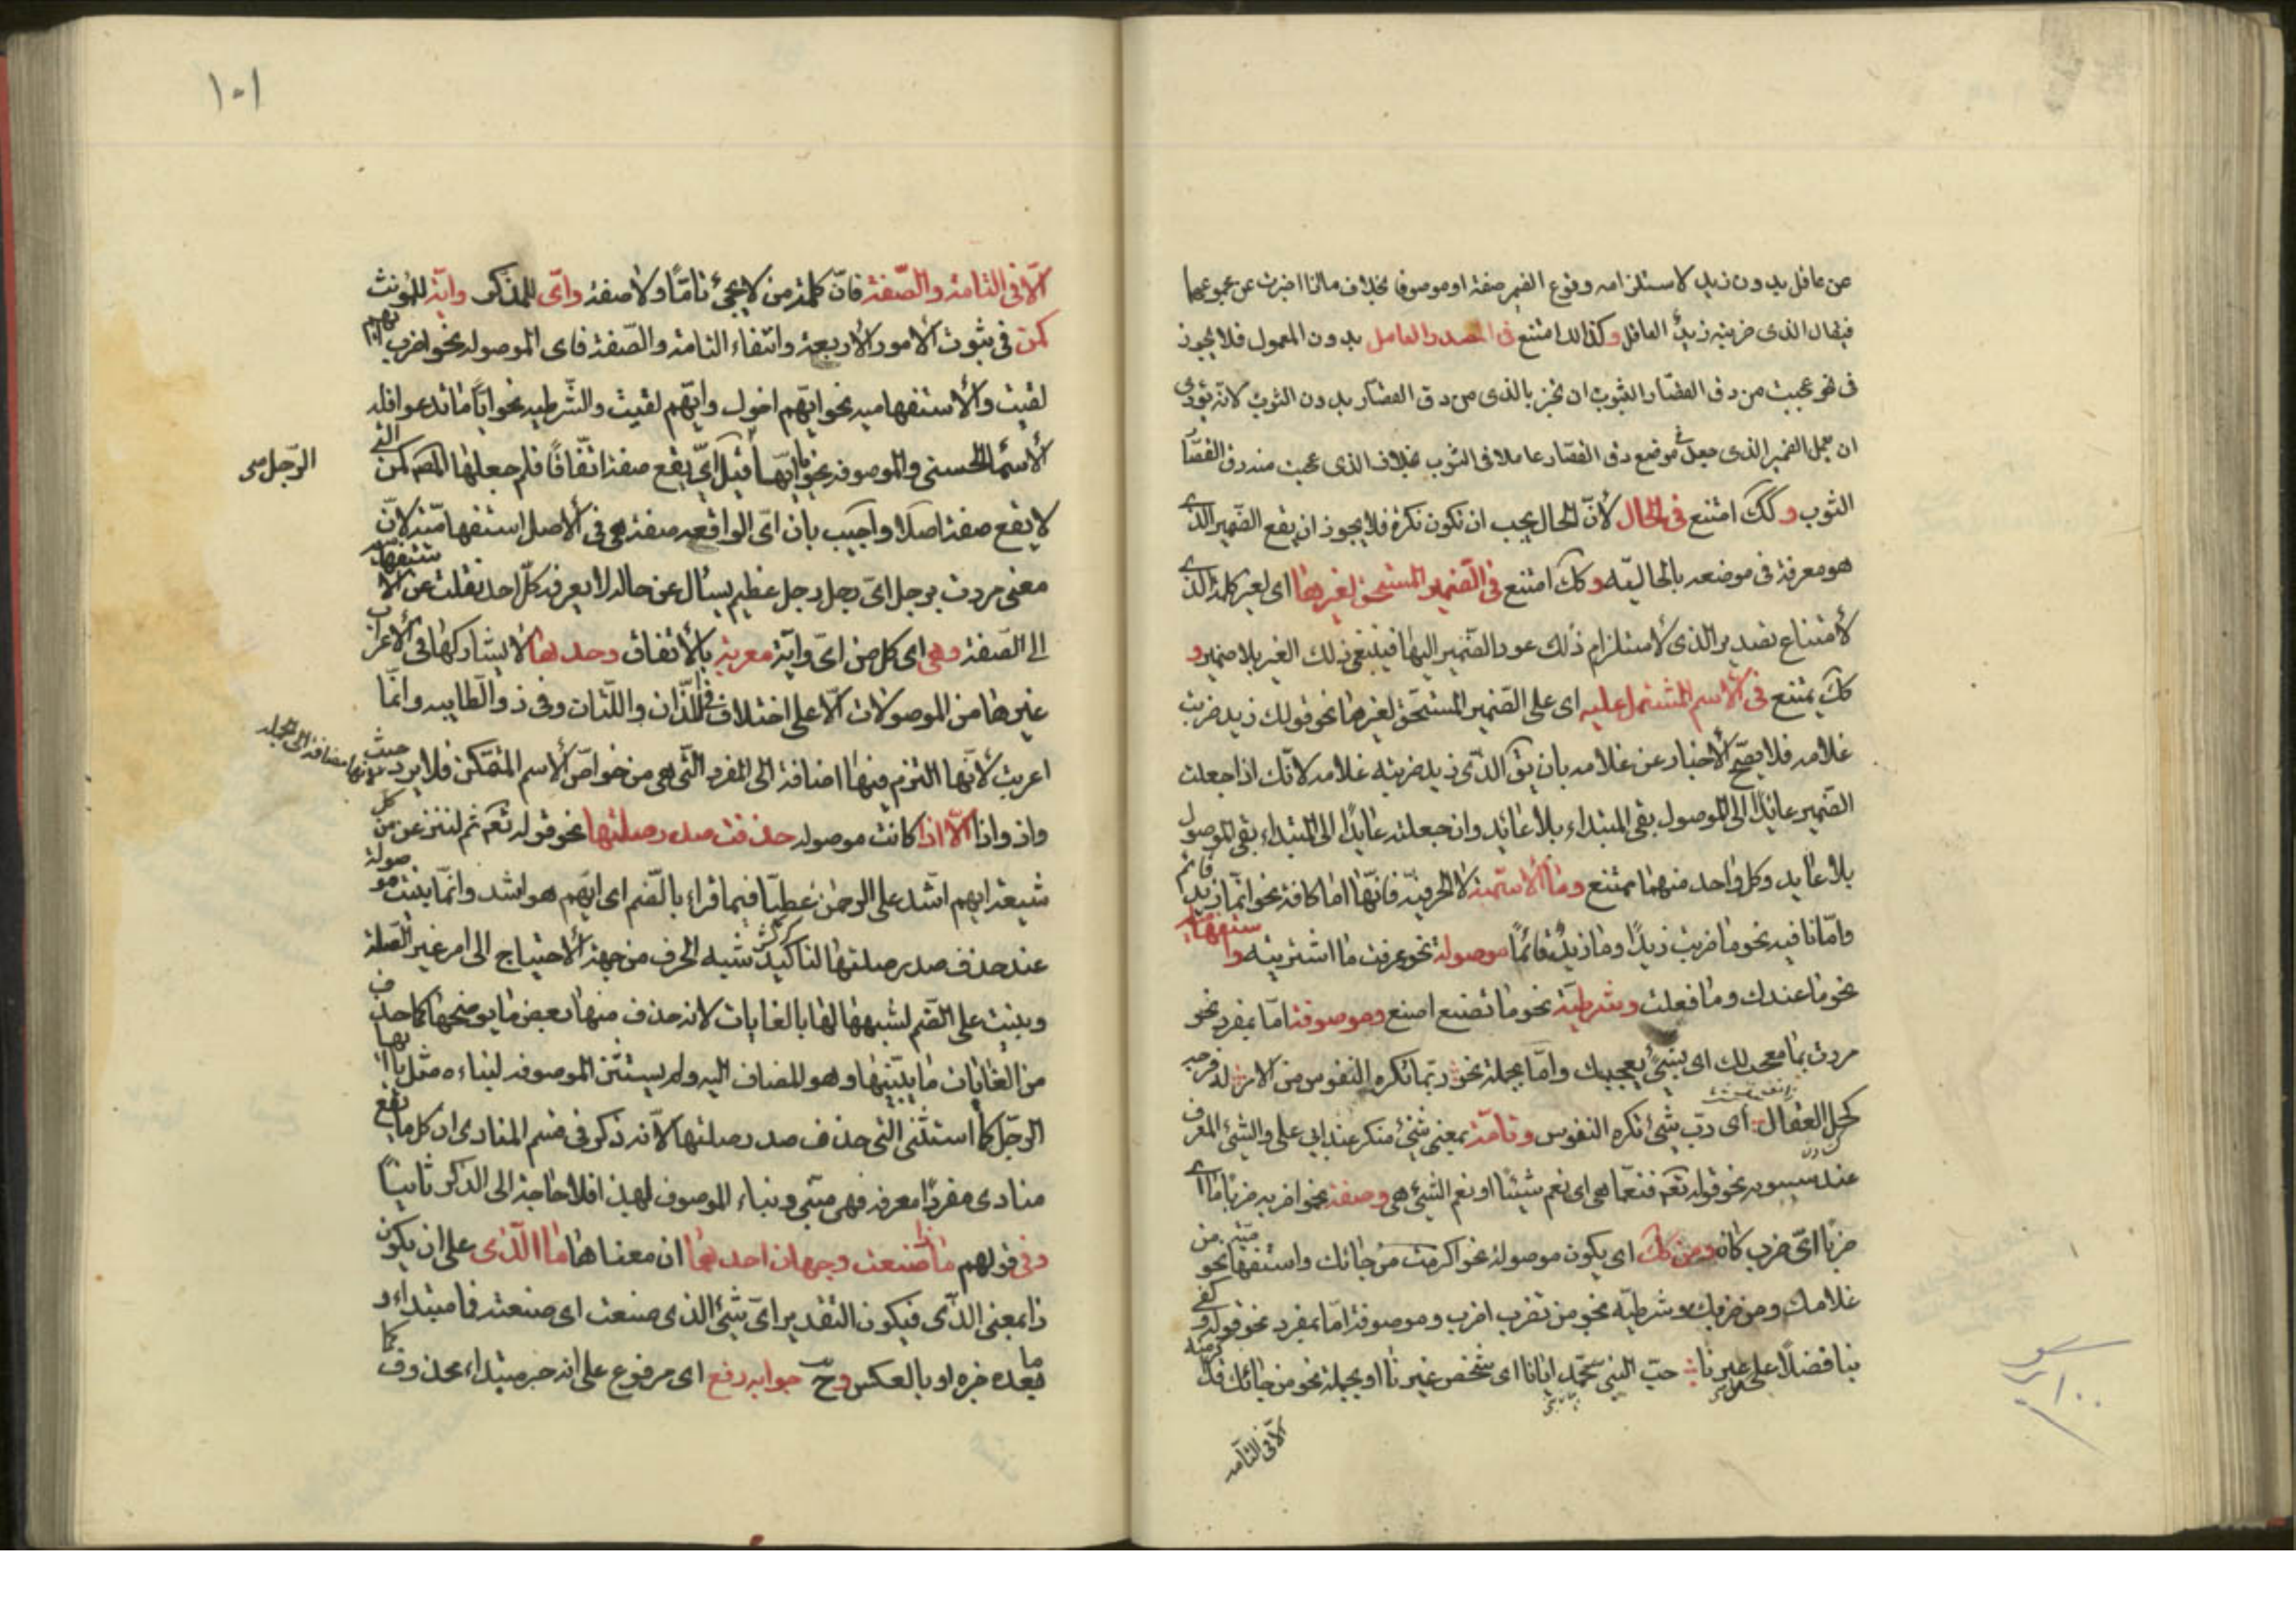 من عاقل بدون زيد لاستلزامه وقوع الضمير صفة او موصوفا بخلاف ما اذا اخبرت عن مجموعهما
فيقال الذى ضربته زيد العاقل وكذلك امتنع فى المصدر العامل بدون المعمول فلا يجوز
فى نحو عجبت من دق القصار الثوب ان تخبر بالذى من دق القصار بدون الثوب لانه يؤدى
ان يعمل الضمير الذى جعل فى موضع دق القصار عاملا فى الثوب بخلاف الذى عجبت منه دق القصار
الثوب وكك امتنع فى الحال لأنّ الحال يجب ان تكون نكرة فلا يجوز ان يقع الضمير الذى
هو معرفة فى موضعه بالحاليّه وكك امتنع فى الضمير المستحق لغيرها اى لغير كلمة الذى
لأمتناع تصدير الذى لأستلزام ذلك عود الضمير اليها فيبقى ذلك الغير بلا ضمير و
كك يمتنع فى الأسم المشتمل عليه اى على الضمير المستحق لغيرها نحو قولك زيد ضربت
غلامه فلا يصحّ الأخبار عن غلامه بان يق الذى زيد ضربته غلامه لانّك اذا جعلت
الضمير عائدًا الى الموصول بقى المبتداء بلا عائد وان جعلته عايدًا الى المبتداء بقى الموصول
بلا عايد وكل واحد منهما ممتنع وما الأسميّة لا الحرفيّة فانّها اما كافة نحو انّما زيد قائم
وامّا نافيه نحو ما ضربت زيدًا وما زيدٌ قائمًا موصولة نحو عرفت ما اشتريته واستفهاميه
نحو ما عندك وما فعلت وشرطيّة نحو ما تصنع اصنع وموصوفة امّا بمفرد نحو
مررت بما معجب لك اى بشىءٍ يعجبك وامّا بجملة نحو ربّما تكره النفوس من الامر له فرجه
كحلّ العقال اى ربّ شىء تكره النفوس وتامّة بمعنى شىء منكر عند ابى على والشىء المعرف
عند سيبويه نحو قوله تعم فنعمّا هى اى نعم شيئًا او نعم الشىء هى وصفة نحو اضربه ضربًا ما اى
ضربًا اىّ ضرب كان ومن كك اى يكون موصولة نحو اكرمت من جائك واستفهاميّه نحو من
غلامك ومن ضربك وشرطيّه نحو من تضرب اضرب وموصوفة امّا بمفرد نحو قوله و كفى
بنا فضلًا على من غيرنا حبّ النبى محمّد ايّانا اى شخص غيرنا او بجملة نحو من جائك قد اكرمته
الّا فى التامّه
١٠١
الّا فى التامّة والصّفة فانّ كلمة من لا يجىء تامّا ولا صفة واىّ للمذكر وايّة للمؤنث
كمن فى ثبوت الأمور الأربعة وانتفاء التامّة والصّفة فاى الموصوله نحو اضرب ايّهم
لقيت والأستفهاميه نحو ايّهم اخوك وايّهم لقيت والشّرطيه نحو ايًّا ما تدعوا فله
الأسماء الحسنى والموصوفه نحو يا ايّها قيل اىّ يقع صفة اتّفاقًا فلم جعلها المص كمن التى
الرّجل
لا يقع صفة اصلًا واجيب بان اىّ الواقعه صفة هى فى الأصل استفهاميّة لانّ
معنى مررت برجل اىّ رجل رجل عظيم يسأل عن حاله لا يعرفه كلّ احد نقلت عن الاستفهاميه
الى الصّفة وهى اى كل من اىّ وايّة معربة بالأتفاق وحدها لا يشاركها فى الأعراب
غيرها من الموصولات الّا على اختلاف فى اللذان واللّتان وفى ذو الطّاييه وانّما
اعربت لأنّها التزم فيها اضافة الى المفرد التّى هى من خواصّ الأسم المتمكّن فلا يرد حيث
لانّها مضافة الى الجمله
واذ واذا الّا اذا كانت موصوله حذفت صدر صلتها نحو قوله تعم ثم لننزعنّ من كل
شيعة ايهم اشد على الرحمن عتيّا فيما قراء بالضم اى ايّهم هو اشد وانّما بنيت موصولة
عند حذف صدر صلتها لتاكيد شبه الحرف من جهة الأحتياج الى امر غير الصّلة
وبنيت على الضم لشبهها لها بالغايات لانه حذف منها بعض ما يوضحها كما حذف
من الغايات ما يبيّنها وهو المضاف اليه ولم يستثن الموصوفه لبناءه مثل يا ايّها
الرّجل كما استثنى التى حذف صدر صلتها لأنّه ذكر فى قسم المنادى ان كل ما يقع
منادى مفردًا معرفه فهى مبنى وبناء الموصوف لهذا فلا حاجة الى الذكر ثانيًا
وفى قولهم ماذا صنعت وجهان احدهما ان معناها ما الّذى على ان يكون
ذا بمعنى الذّى فيكون التقدير اىّ شىء الذى صنعت اى صنعته فما مبتداء و
ما بعده خبره او بالعكس وح جوابه رفع اى مرفوع على انه خبر مبتداء محذوف كما